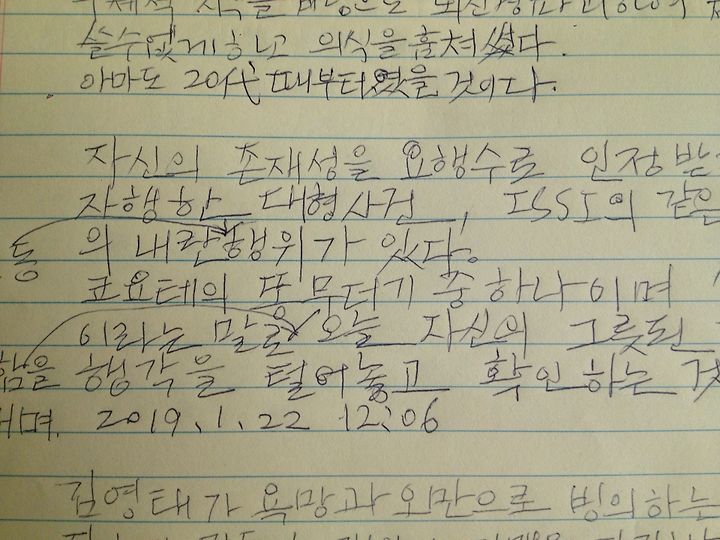 쓸수없게하고 의식을 훔쳐 썼다.
아마도 20代 때부터였을 것이다.
자신의 존재성을 요행수로 인정받
자행한 대형사건, ISSI의 같은
동 의 내란행위가 있다.
코요테의 또 무더기 중 하나이며
이라는 말로 오늘 자신의 그릇된
함을 행각을 털어놓고 확인하는 것
며. 2019. 1. 22 12:06
김영태가 욕망과 오만으로 빙의하는